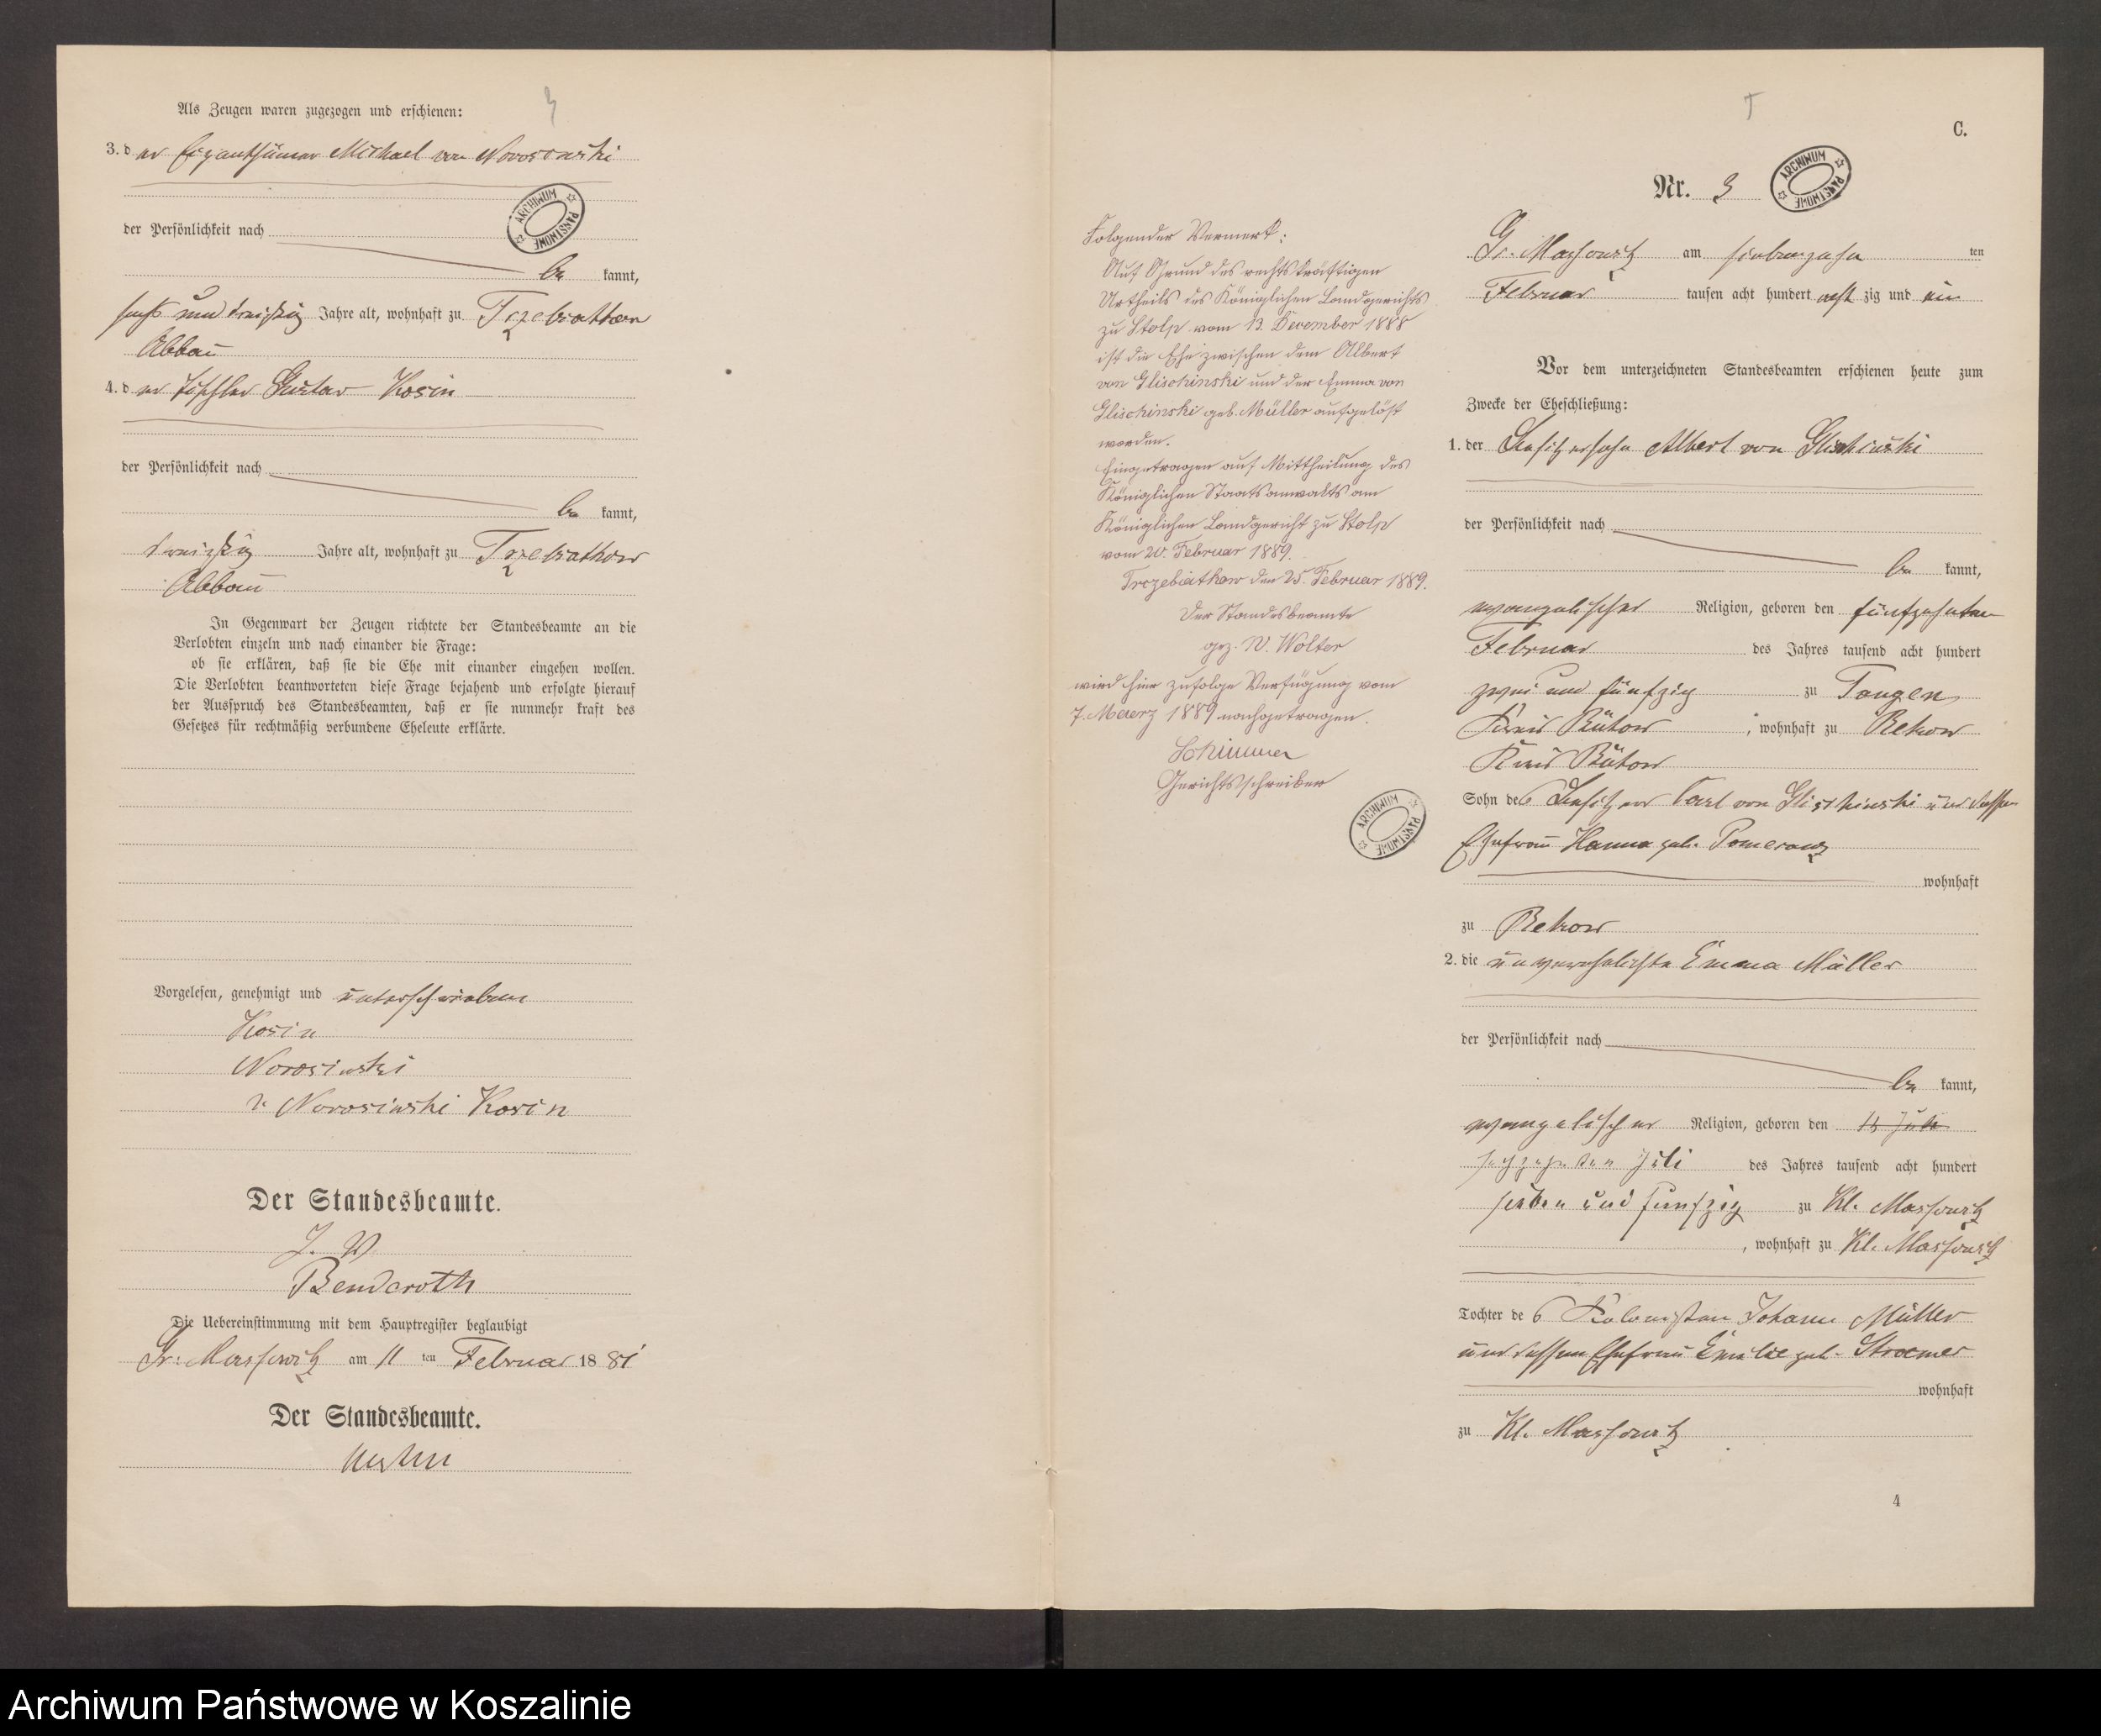 3
Als Zeugen waren zugezogen und erschienen:
3. der Eigenthümer Michael von
der Persönlichkeit nach
be kannt,
sechs und dreißig Jahre alt, wohnhaft zu Trzebiatkow
Abbau
4. der Tischler Gustav Kosin
der Persönlichkeit nach
be kannt,
dreißig Jahre alt, wohnhaft zu Trzebiatkow
Abbau
In Gegenwart der Zeugen richtete der Standesbeamte an die
Verlobten einzeln und nach einander die Frage:
ob sie erklären, daß sie die Ehe mit einander eingehen wollen.
Die Verlobten beantworteten diese Frage bejahend und erfolgte hierauf
der Ausspruch des Standesbeamten, daß er sie nunmehr kraft des
Gesetzes für rechtmäßig verbundene Eheleute erklärte.
Vorgelesen, genehmigt und unterschrieben
Kosin
Norosinski
v Norosinski Kosin
Der Standesbeamte.
J. V
Benderoth
Die Uebereinstimmung mit dem Hauptregister beglaubigt
Gr. Massowitz am 11 ten Februar 18 81
Der Standesbeamte.
ARCHIWUM PAŃSTWOWE
Folgender Vermerk:
Auf Grund des rechtskräftigen
Urtheils des Königlichen Landgerichts
zu Stolp vom 13. December 1888
ist die Ehe zwischen dem Albert
von Glischinski und der Emma von
Glischinski geb. Müller aufgelöst
worden.
Eingetragen auf Mittheilung des
Königlichen Staatsanwalts am
Königlichen Landgericht zu Stolp
vom 20. Februar 1889.
Trczebiatkow den 25. Februar 1889.
Der Standesbeamte
gez. W. Wolter
wird hier zufolge Verfügung vom
7. Maerz 1889 nachgetragen.
Schimmer
Gerichtsschreiber
ARCHIWUM PAŃSTWOWE
C.
Nr. 3
ARCHIWUM PAŃSTWOWE
Gr. Massowitz am siebenzehn ten
Februar tausen acht hundert acht zig und ein
Vor dem unterzeichneten Standesbeamten erschienen heute zum
Zwecke der Eheschließung:
1. der Besitzersohn Albert von Glischinski
der Persönlichkeit nach
be kannt,
evangelischer Religion, geboren den fünfzehnten
Februar des Jahres tausend acht hundert
zwei und fünfzig zu Tangen
Kreis Bütow , wohnhaft zu Rekow
Kreis Bütow
Sohn des Besitzers Carl von Glischinski und dessen
Ehefrau Hanna geb. Pomerenz
wohnhaft
zu Rekow
2. die unverehelichte Emma Müller
der Persönlichkeit nach
be kannt,
evangelischer Religion, geboren den 16 Juli
sechzehnten Juli des Jahres tausend acht hundert
sieben und fünfzig zu Kl. Massowitz
, wohnhaft zu Kl. Massowitz
Tochter des Kolonisten Johann Müller
und dessen Ehefrau Emilie geb. Stroemer
wohnhaft
zu Kl. Massowitz
4
Archiwum Państwowe w Koszalinie